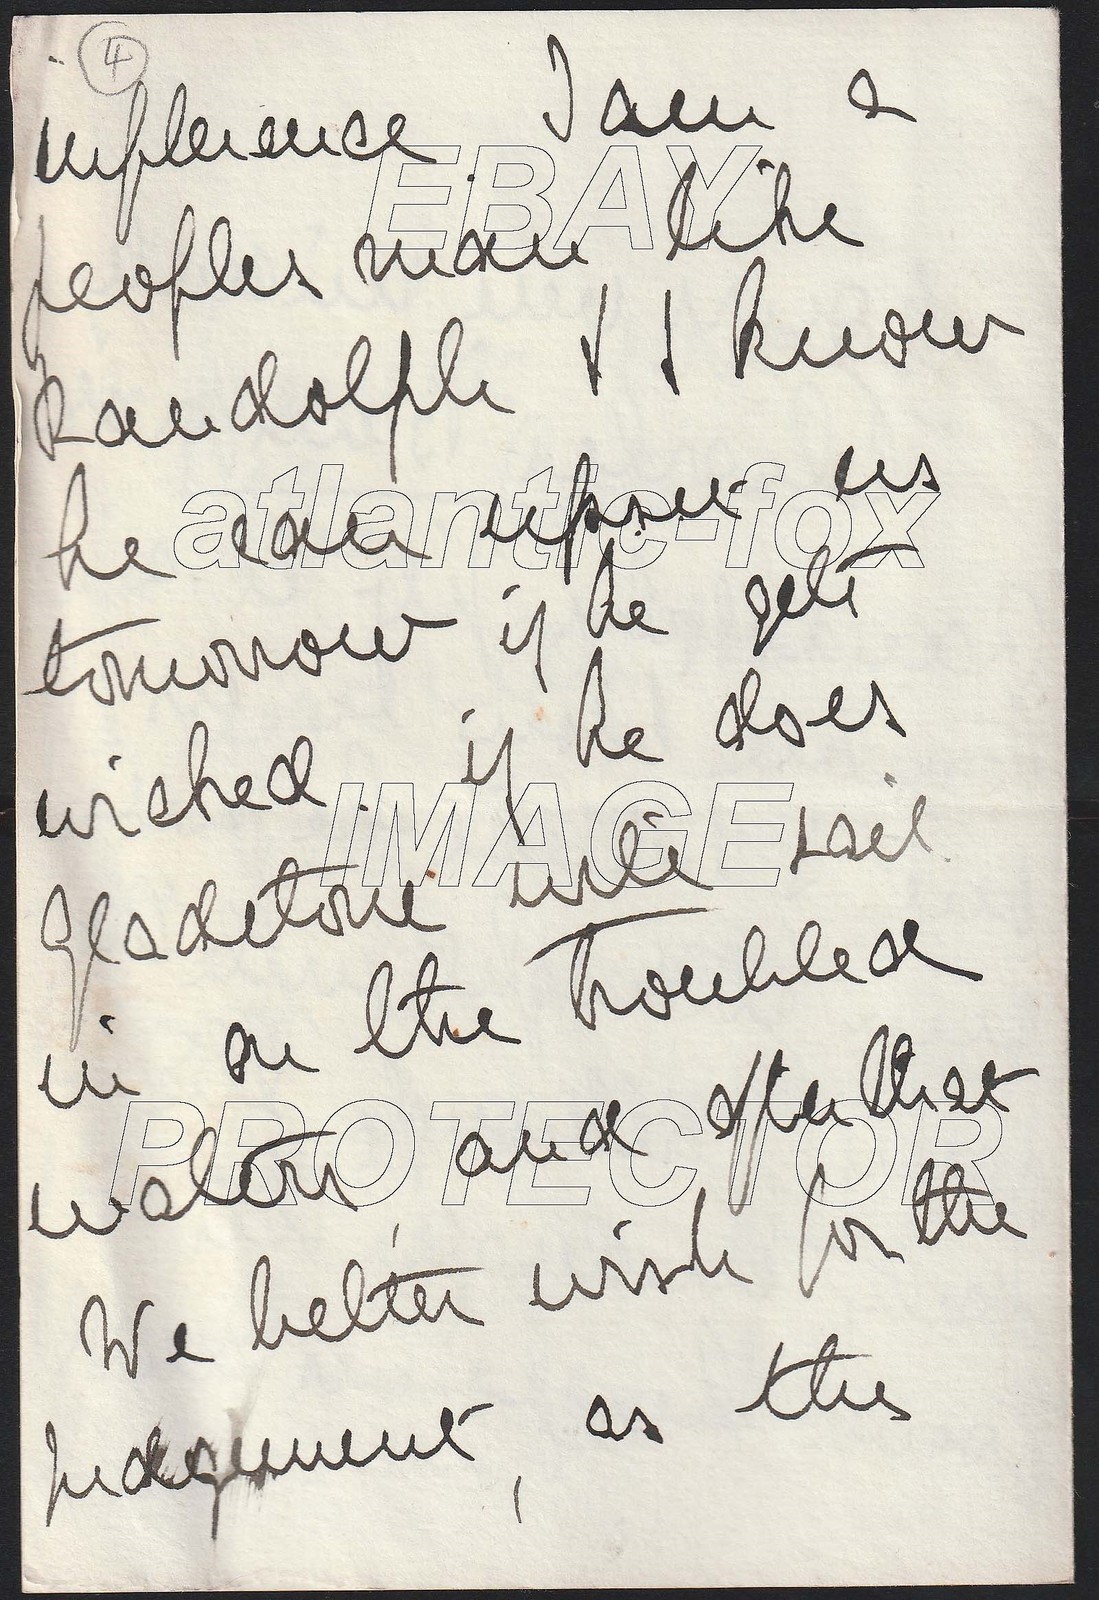 4
influence. I am a
EBAY
peoples man like
Randolph & I know
he can upset us
atlantic-fox
tomorrow if he gets
wicked. if he does
IMAGE
Gladstone will sail
in on the troubled
waters, and after that
PROTECTOR
We better wish for the
judgement, as the